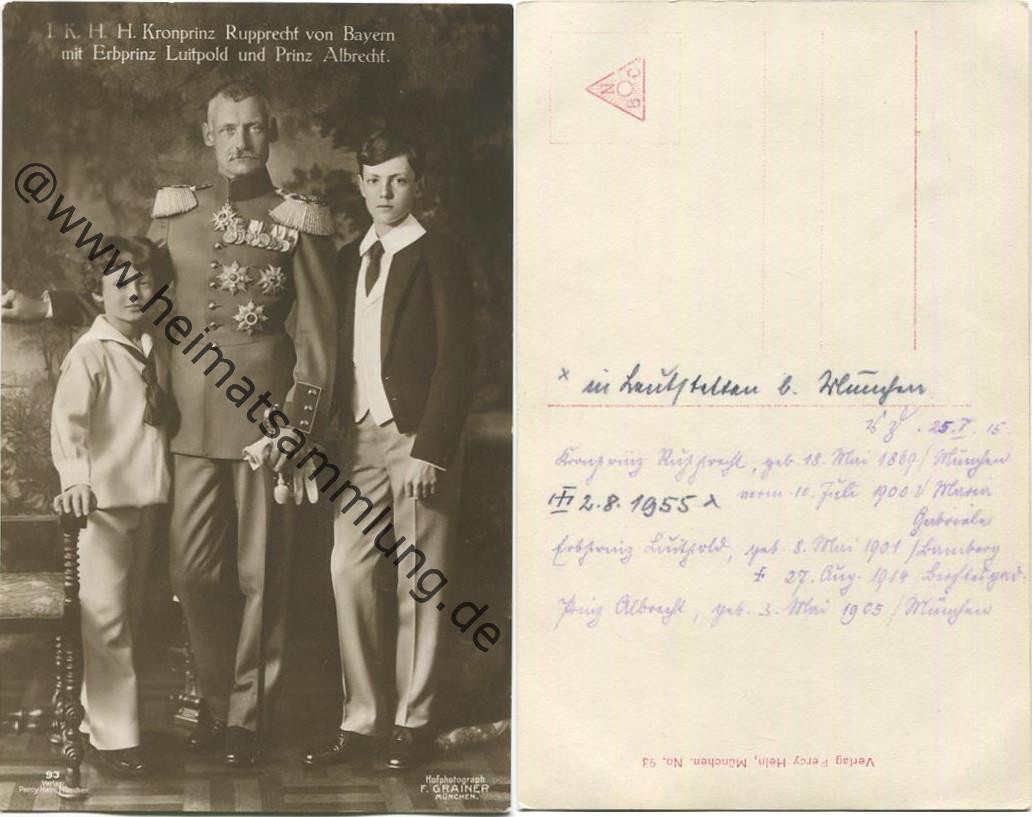 I. K. H. H. Kronprinz Rupprecht von Bayern
mit Erbprinz Luitpold und Prinz Albrecht.
@www.heimatsammlung.de
93
Verlag:
Percy Hein, München
Hofphotograph
F. GRAINER
MÜNCHEN.
N
B C
x in Leutstetten b. München
25. V. 15.
Kronprinz Rupprecht, geb 18. Mai 1869 / München
2.8.1955 verm 10. Juli 1900 Maria
Gabriele
Erbprinz Luitpold, geb. 8. Mai 1901 / Bamberg
+ 27. Aug. 1914 Berchtesgad.
Prinz Albrecht, geb. 3. Mai 1905 / München
Verlag Percy Hein, München. No. 93